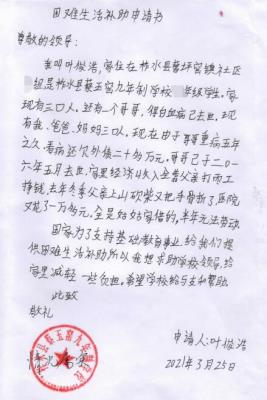 困难生活补助申请书
尊敬的领导:
我叫叶俊浩,家住在柞水县蔡玉窑镇社区
组是柞水县蔡玉窑九年制学校 年级学生。家
现有三口人,还有一个哥哥,得白血病已去世,现
有我、爸爸、妈妈三人。现在由于哥哥重病五年
之久,看病还欠外债二十多万元。哥哥已于二0一
六年五月去世,家里经济收入全靠父亲打工
挣钱,去年冬季父亲上山砍柴又把手骨折了医院
又花了一万多元,全是妈妈家借的,本年无法劳动
国家为了支持基础教育事业,给我们提
供困难生活补助所以我想求助学校领导,给
家里减轻一些负担。希望学校给与支和帮助
此致
敬礼
情况属实
申请人:叶俊浩
2021年3月25日